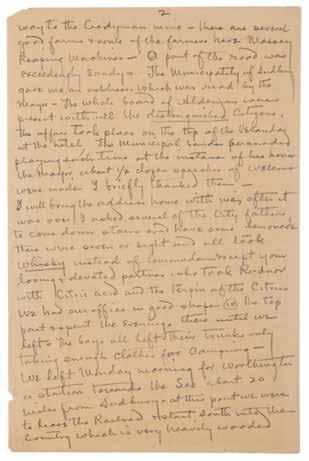 2
way to the Credyman mine - there are several
good farms & some of the farmers have Massey
Reaping Machines - A part of the road was
exceedingly sandy - The Municipality of Sudbury
gave me an address which was read by the
Mayor - The whole board of Aldermen were
present with all the distinguished Citizens,
the affair took place on the top of the Veranday
at the hotel, The Municipal band serenaded
playing each time at the instance of his honor
the Mayor, about 1/2 dozen speeches of Welcome
were made I briefly thanked them -
I will bring the address home with me, after it
was over I asked several of the City fathers
to come down stairs and have some lemonade
there were seven or eight and all took
Whisky instead of lemonade except your
loving & devoted partner who took Radnor
with Citric acid and the Terpin of the Citrus
We had our office in good shape the top
part & spent the Evenings there until we
left - The boys all left their trunks only
taking enough clothes for Camping -
We left Monday morning for Worthington
a station towards the Soo about 20
miles from Sudbury - at this point we were
to leave the Railroad & start South into the
Country which is very heavily wooded